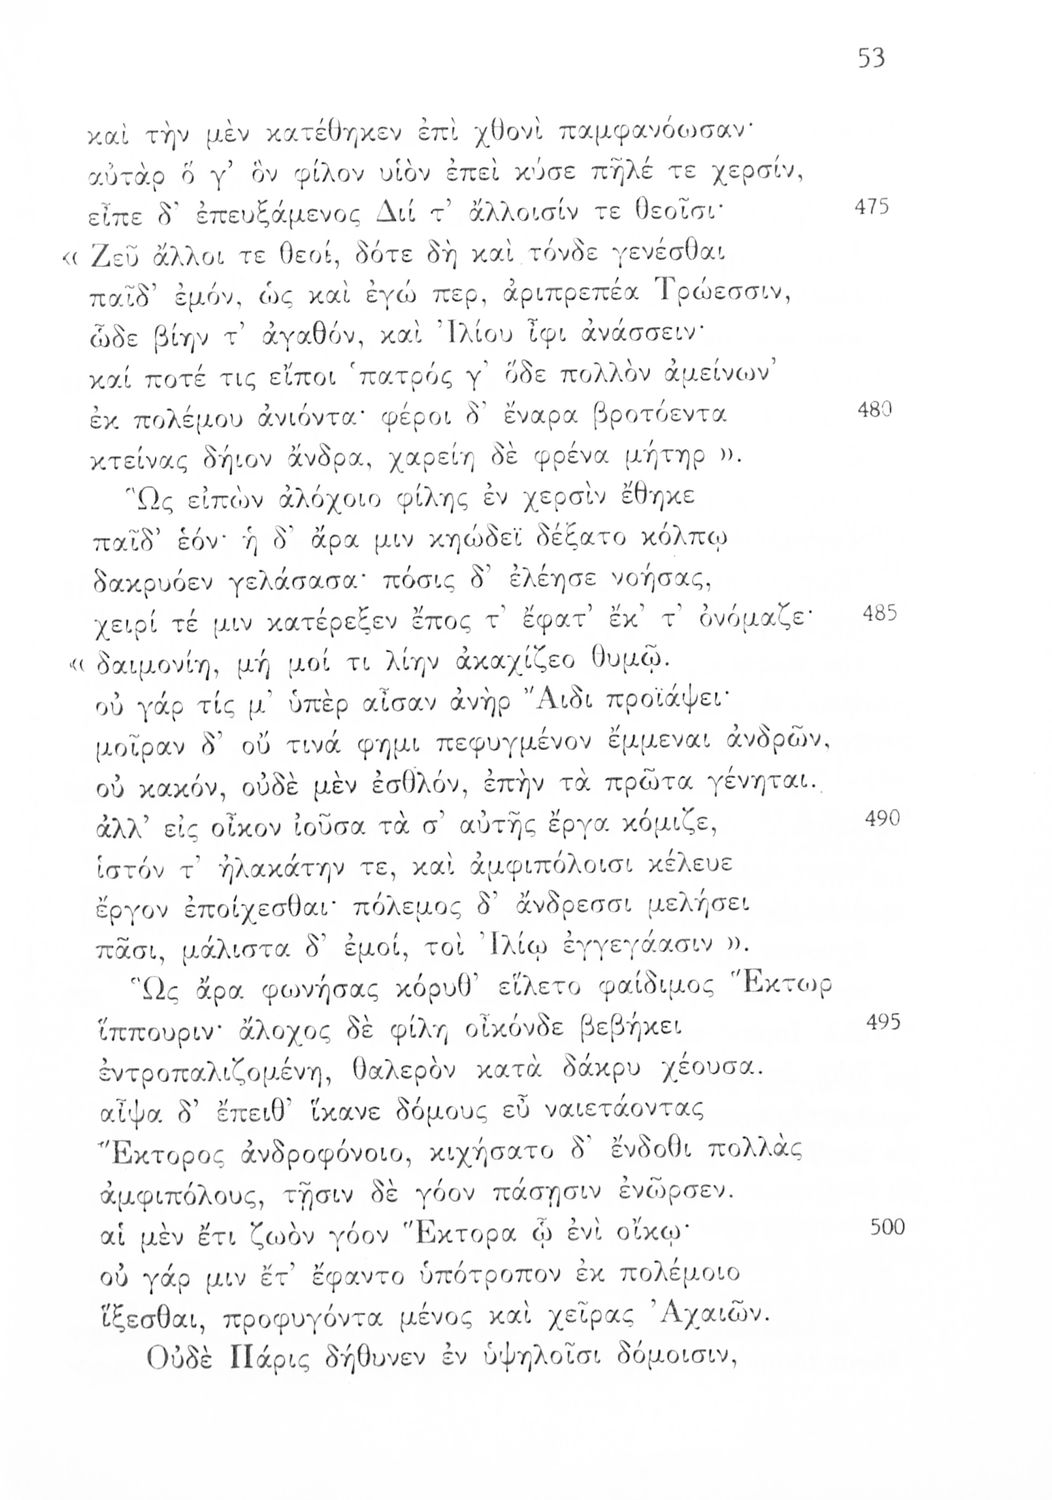 53
καὶ τὴν μὲν κατέθηκεν ἐπὶ χθονὶ παμφανόωσαν·
αὐτὰρ ὅ γ’ ὃν φίλον υἱὸν ἐπεὶ κύσε πῆλέ τε χερσίν,
εἶπε δ’ ἐπευξάμενος Διί τ’ ἄλλοισίν τε θεοῖσι· 475
« Ζεῦ ἄλλοι τε θεοί, δότε δὴ καὶ τόνδε γενέσθαι
παῖδ’ ἐμόν, ὡς καὶ ἐγώ περ, ἀριπρεπέα Τρώεσσιν,
ὧδε βίην τ’ ἀγαθόν, καὶ Ἰλίου ἶφι ἀνάσσειν·
καί ποτέ τις εἴποι ‘πατρός γ’ ὅδε πολλὸν ἀμείνων’
ἐκ πολέμου ἀνιόντα· φέροι δ’ ἔναρα βροτόεντα 480
κτείνας δήιον ἄνδρα, χαρείη δὲ φρένα μήτηρ ».
Ὣς εἰπὼν ἀλόχοιο φίλης ἐν χερσὶν ἔθηκε
παῖδ’ ἑόν· ἡ δ’ ἄρα μιν κηώδεϊ δέξατο κόλπῳ
δακρυόεν γελάσασα· πόσις δ’ ἐλέησε νοήσας,
χειρί τέ μιν κατέρεξεν ἔπος τ’ ἔφατ’ ἔκ’ τ’ ὀνόμαζε· 485
« δαιμονίη, μή μοί τι λίην ἀκαχίζεο θυμῷ.
οὐ γάρ τίς μ’ ὑπὲρ αἶσαν ἀνὴρ Ἄιδι προϊάψει·
μοῖραν δ’ οὔ τινά φημι πεφυγμένον ἔμμεναι ἀνδρῶν,
οὐ κακόν, οὐδὲ μὲν ἐσθλόν, ἐπὴν τὰ πρῶτα γένηται.
ἀλλ’ εἰς οἶκον ἰοῦσα τὰ σ’ αὐτῆς ἔργα κόμιζε, 490
ἱστόν τ’ ἠλακάτην τε, καὶ ἀμφιπόλοισι κέλευε
ἔργον ἐποίχεσθαι· πόλεμος δ’ ἄνδρεσσι μελήσει
πᾶσι, μάλιστα δ’ ἐμοί, τοὶ Ἰλίῳ ἐγγεγάασιν ».
Ὣς ἄρα φωνήσας κόρυθ’ εἵλετο φαίδιμος Ἕκτωρ
ἵππουριν· ἄλοχος δὲ φίλη οἶκόνδε βεβήκει 495
ἐντροπαλιζομένη, θαλερὸν κατὰ δάκρυ χέουσα.
αἶψα δ’ ἔπειθ’ ἵκανε δόμους εὖ ναιετάοντας
Ἕκτορος ἀνδροφόνοιο, κιχήσατο δ’ ἔνδοθι πολλὰς
ἀμφιπόλους, τῇσιν δὲ γόον πάσῃσιν ἐνῶρσεν.
αἱ μὲν ἔτι ζωὸν γόον Ἕκτορα ᾧ ἐνὶ οἴκῳ· 500
οὐ γάρ μιν ἔτ’ ἔφαντο ὑπότροπον ἐκ πολέμοιο
ἵξεσθαι, προφυγόντα μένος καὶ χεῖρας Ἀχαιῶν.
Οὐδὲ Πάρις δήθυνεν ἐν ὑψηλοῖσι δόμοισιν,